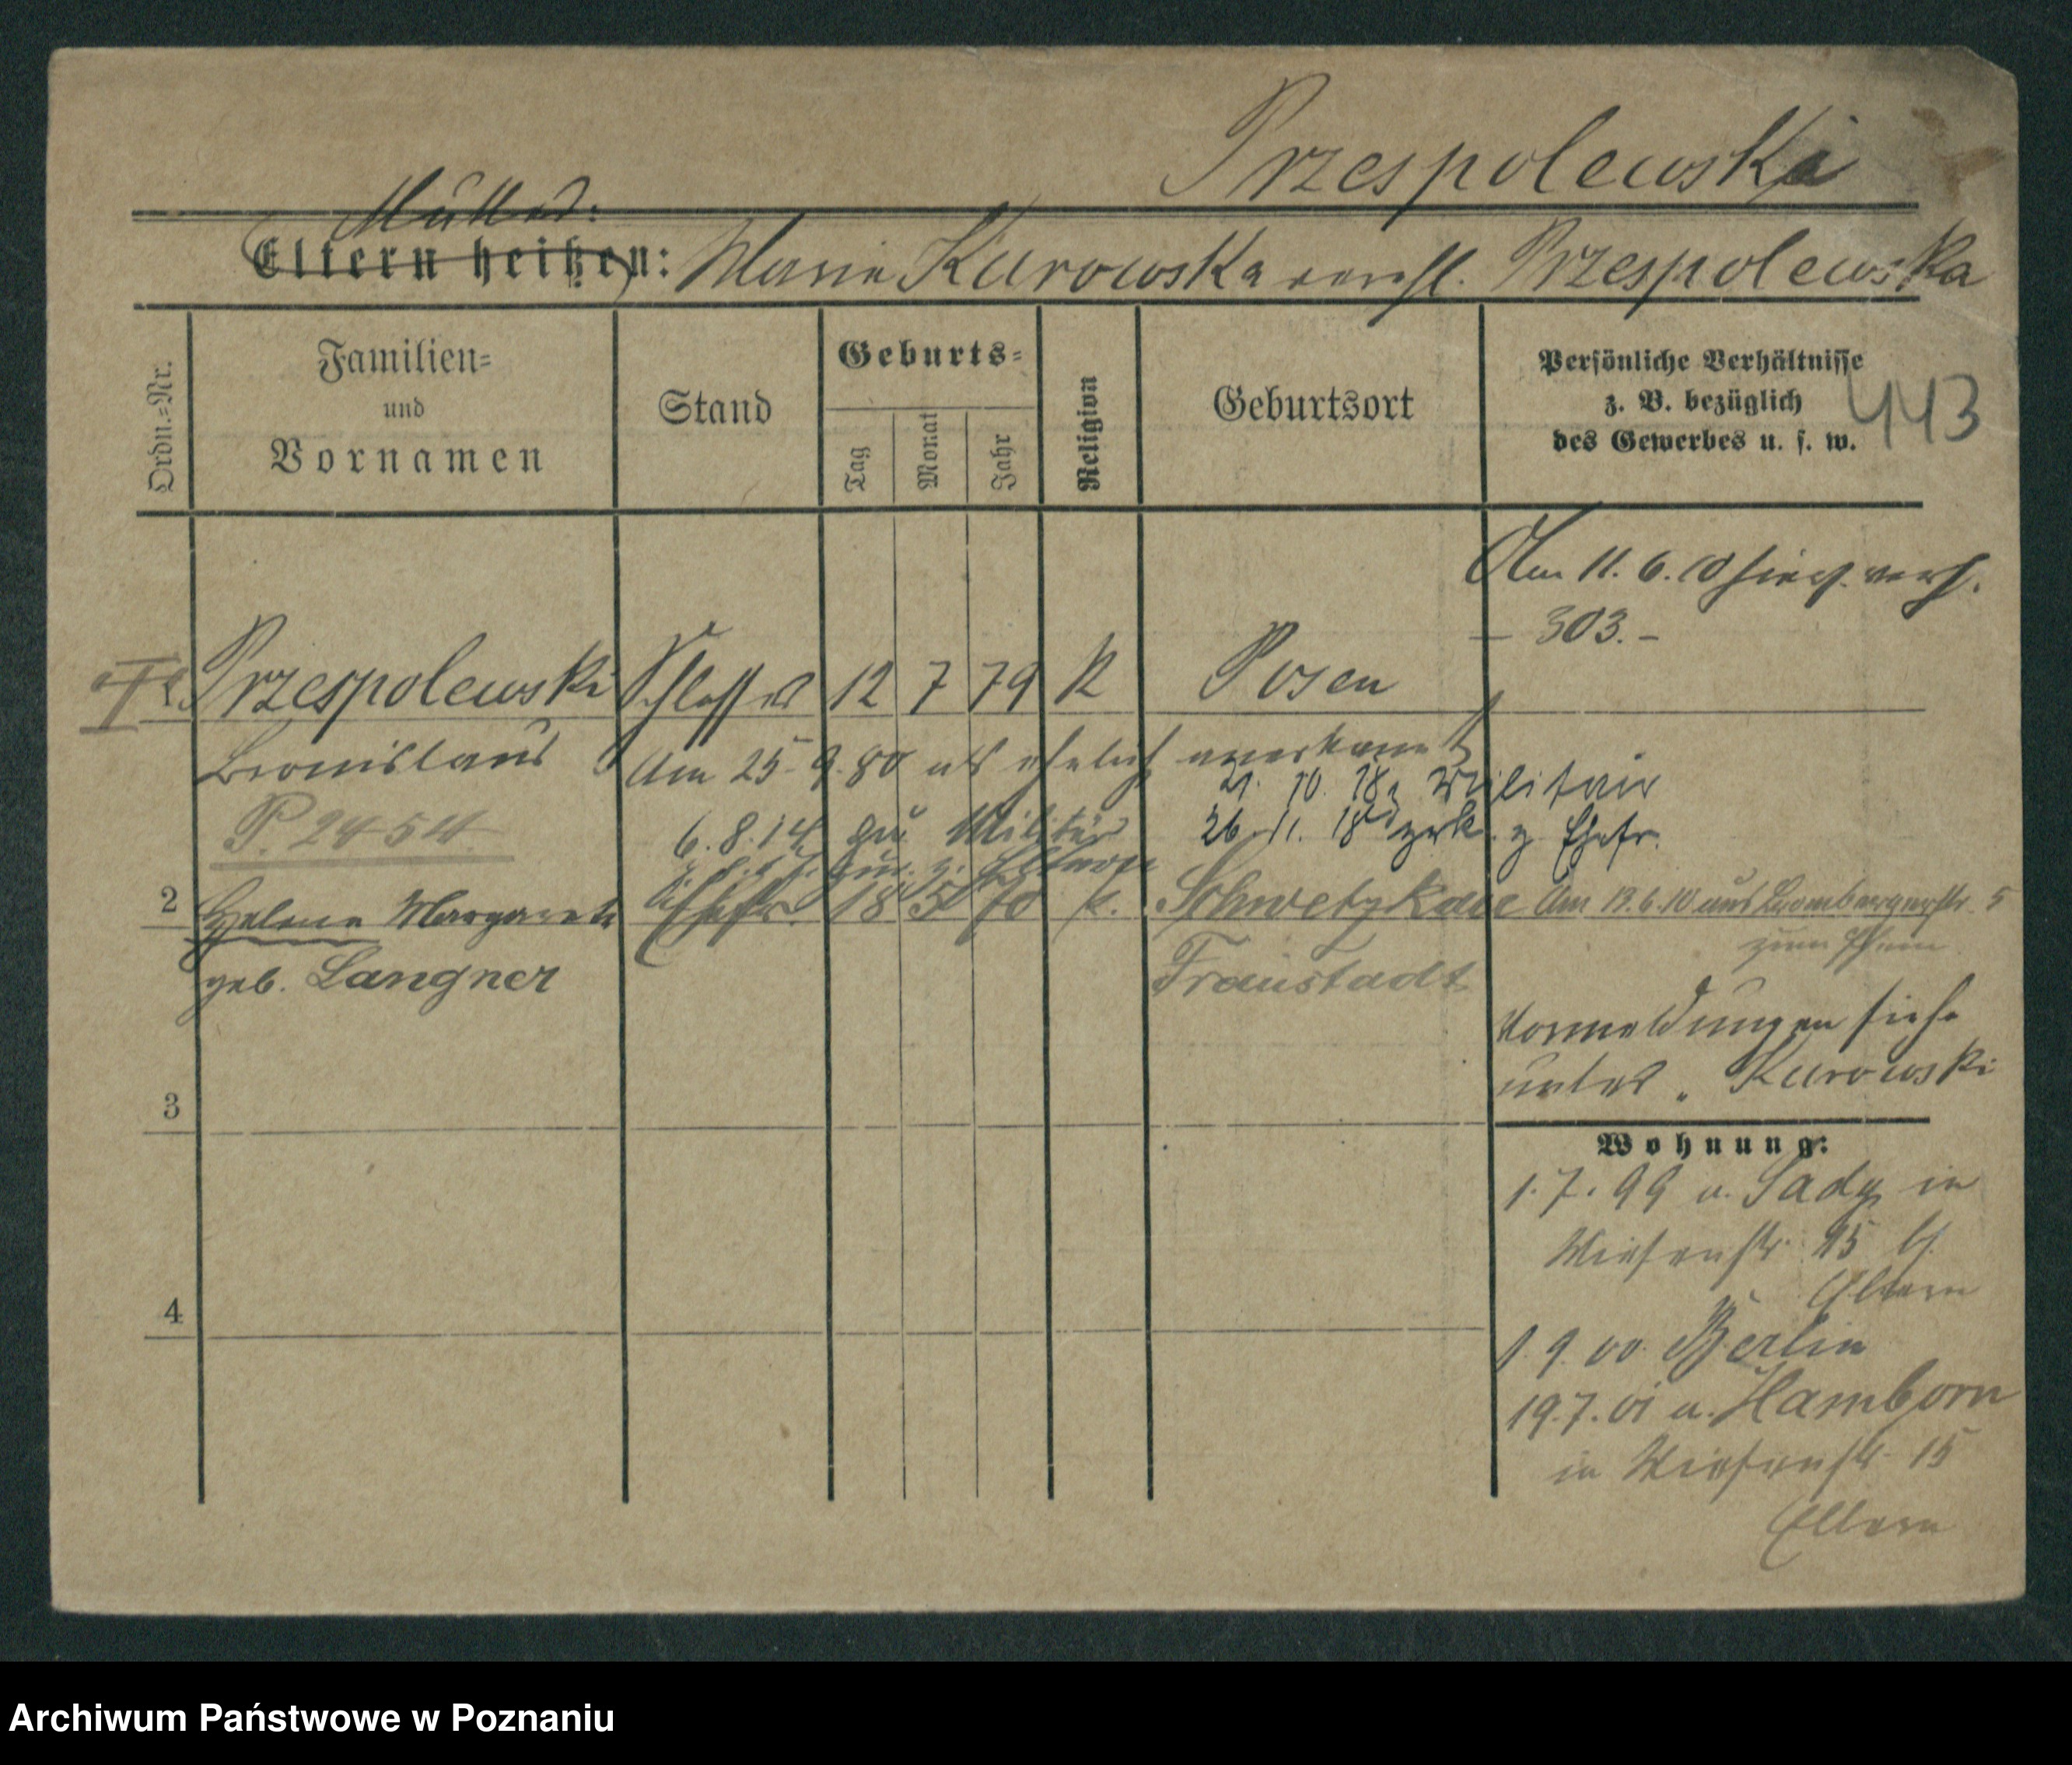 Przespolewski
Mutter:
Eltern heißen: Marie Kurowska verehl. Przespolewska
Ordn.-Nr.
Familien-
und
Vornamen
Stand
Geburts-
Tag
Monat
Jahr
Religion
Geburtsort
Persönliche Verhältnisse
z. B. bezüglich
des Gewerbes u. s. w.
443
Am 11. 6. 10 hier verh.
– 303. –
1 Przespolewski Schlosser 12 7 79 K Posen
Bronislaus Am 25. 9. 80 als ehelich anerkannt
21. 10. 18 Militair
P. 2454
6. 8. 14 zu Militär
26. 11. 18 zrk. z. Ehefr.
z. Eltern
2 Helene Margarete Ehefr. 18 5 K. Schwetzkau Am 13. 6. 10 aus Brombergerstr. 5
zum
geb. Langner Fraustadt
Vormeldungen siehe
unter „Kurowski
3
Wohnung:
1. 7. 99 v. Sady in
Wiesenstr. 15 b.
Eltern
4
1. 9. 00 Berlin
19. 7. 01 v. Hamborn
in Wiesenstr. 15
Eltern
Archiwum Państwowe w Poznaniu